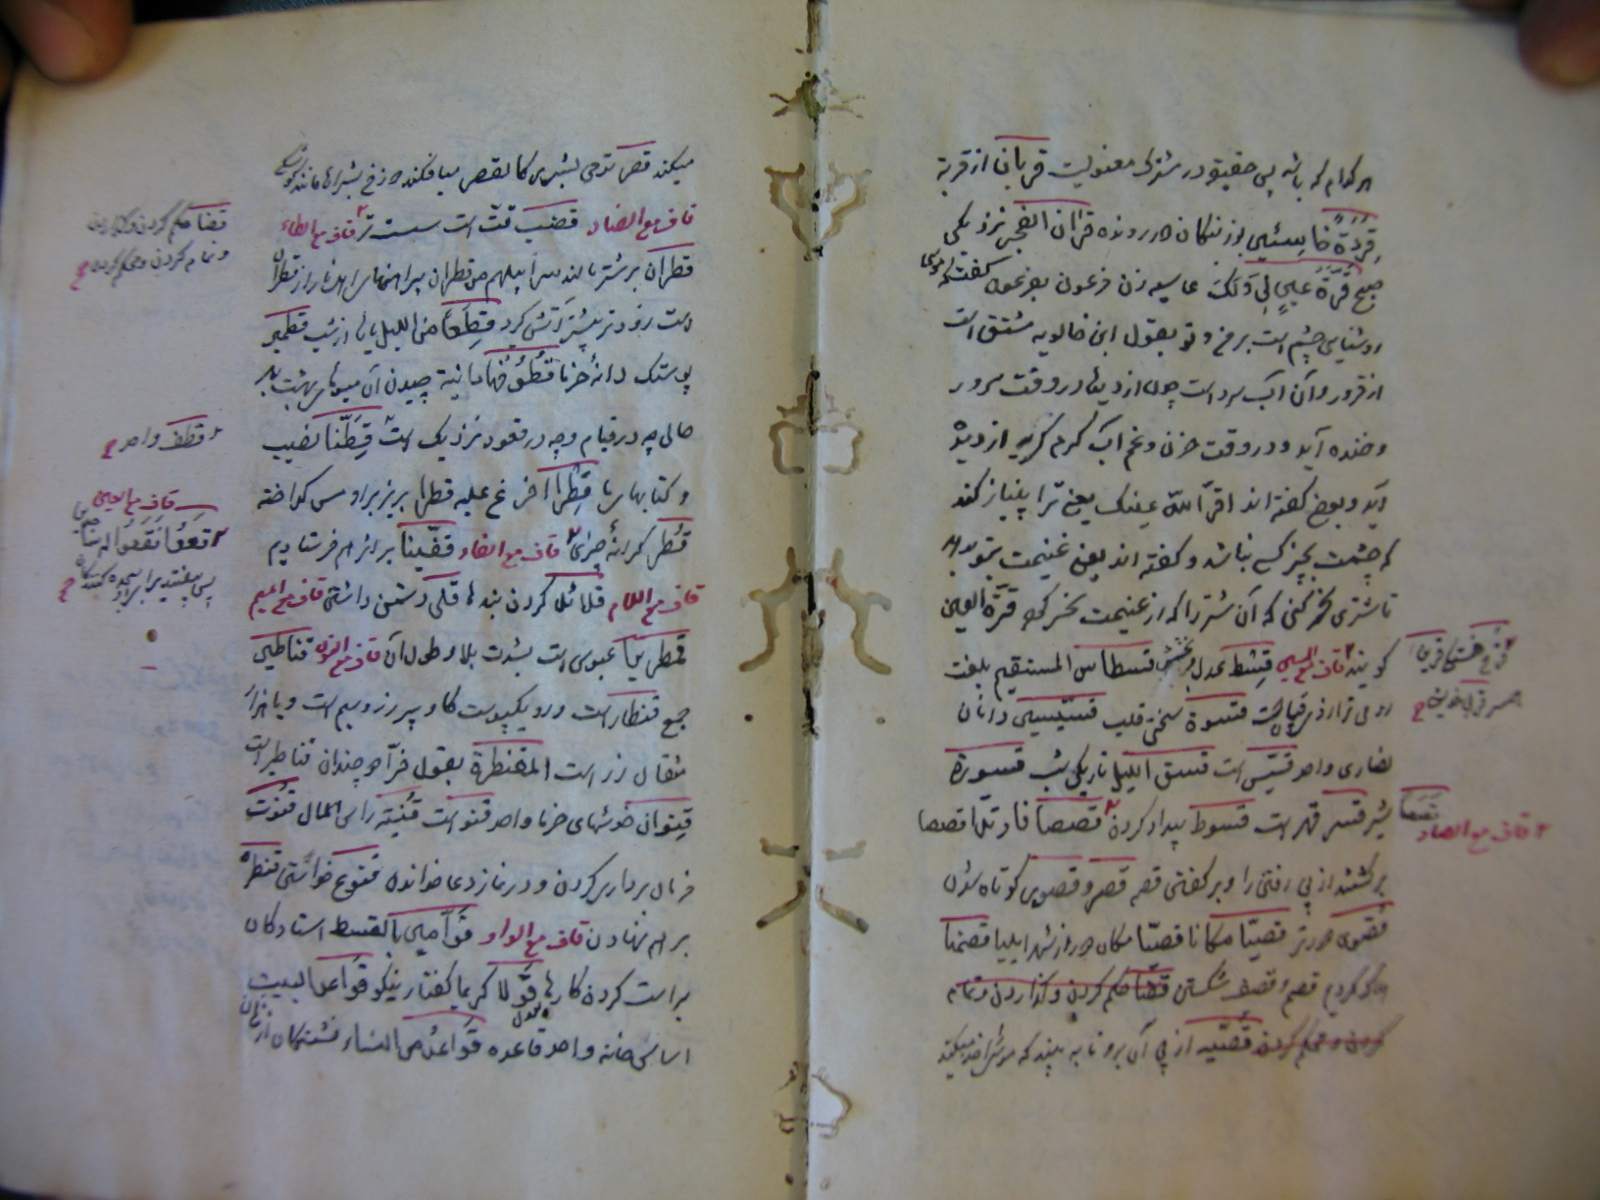 هر کدام که باشد پس حقیقة در مشترک معنویست قربانا از قربة
قردة خاسئین بوزنتکان دور رونده قران الفجر نزدیکی
صبح قرة عین لی ولک آسیه زن فرعون بفرعون گفت که موسی
روشنایی چشم است بر من و تو بقول ابن خالویه مشتق است
از قرور و آن آب سرد است چون از دیدها در وقت سرور
و خنده آید و در وقت حزن و غم آب گرم گریه از دیده
آید و بعضی گفته اند اقر الله عینک یعنی ترا بنیاز کند
که چشمت بچیز کسی نباشد و گفته اند یعنی غنیمت بتو بدهد
تا شتری نحر کنی که آن شتر را که از غنیمت نحر کرد قرة العین
گویند قاف مع السین قسط عدل و بخش قسطاس المستقیم بلغت
رومی ترازو قسوة سختی قلب قسیسین دانان
نصاری واحد قسیس است قسق اللیل تاریکی شب قسورة
شیر قسر قهر است قسوط بیداد کردن قصصا فارتدا قصصا
برگشتند از پی رفتن را و بر گفتن قصه قصر و قصور کوتاه شدن
قصوی دورتر قصیا مکانا قصیا مکان دور از شهر ایلیا قصمنا
هلاک کردیم قصم و قصف شکستن قضا حکم کردن و گذاردن و تمام
کردن و محکم کردن قصیه از پی آن برو تا به بیند که موسی را چه میکند
قصصا
قاف مع الصاد
میکند قصر ترمی بشرر کالقصر میافکند دوزخ بشرارها مانند کوشک
قاف مع الضاد قضب قت است سست تر قاف مع الطاء
قطران بر شتر مالند سرابیلهم من قطران پیراهنهای اهل نار از قطران
است زودتر بیشتر آتش گیرد قطعا من اللیل پاره از شب قطمیر
پوستک دانه خرما قطوفها دانیة چیدن آن میوهای بهشت بهر
حالی چه در قیام و چه در قعود نزدیک است قطنا نصیب
و کتابهای ما قطرا افرغ علیه قطرا بریزم بر او مس گداخته
قطر کرانه چیزی قاف مع الفاء قفینا بر اثر هم فرستادیم
قاف مع اللام قلائد گردن بندها قلی دشمن داشتن قاف مع المیم
قمطریرا عبوس است بشدت بلا و طول آن قاف مع النون قناطیر
جمع قنطار است و در و یکپوست گاو پر زر و سیم است و یا هزار
مثقال زر است المقنطرة بقول فرا دو چندان قناطیر است
قنوان خوشهای خرما واحد قنو است قنیة راس المال قنوت
فرمان برداری کردن و در نماز دعا خواندن قنوع خواستن قنطرة
بر هم نهادن قاف مع الواو قوامین بالقسط استادگان
براست کردن کارها قولا کریما گفتار نیکو قواعد البیت
اساس خانه واحد قاعده قواعد من النساء نشستگان از زنان
قضا حکم کردن و گذاردن
و تمام کردن و محکم کردن
قطف واحد
قاف مع العین
فقعوا له ساجدین